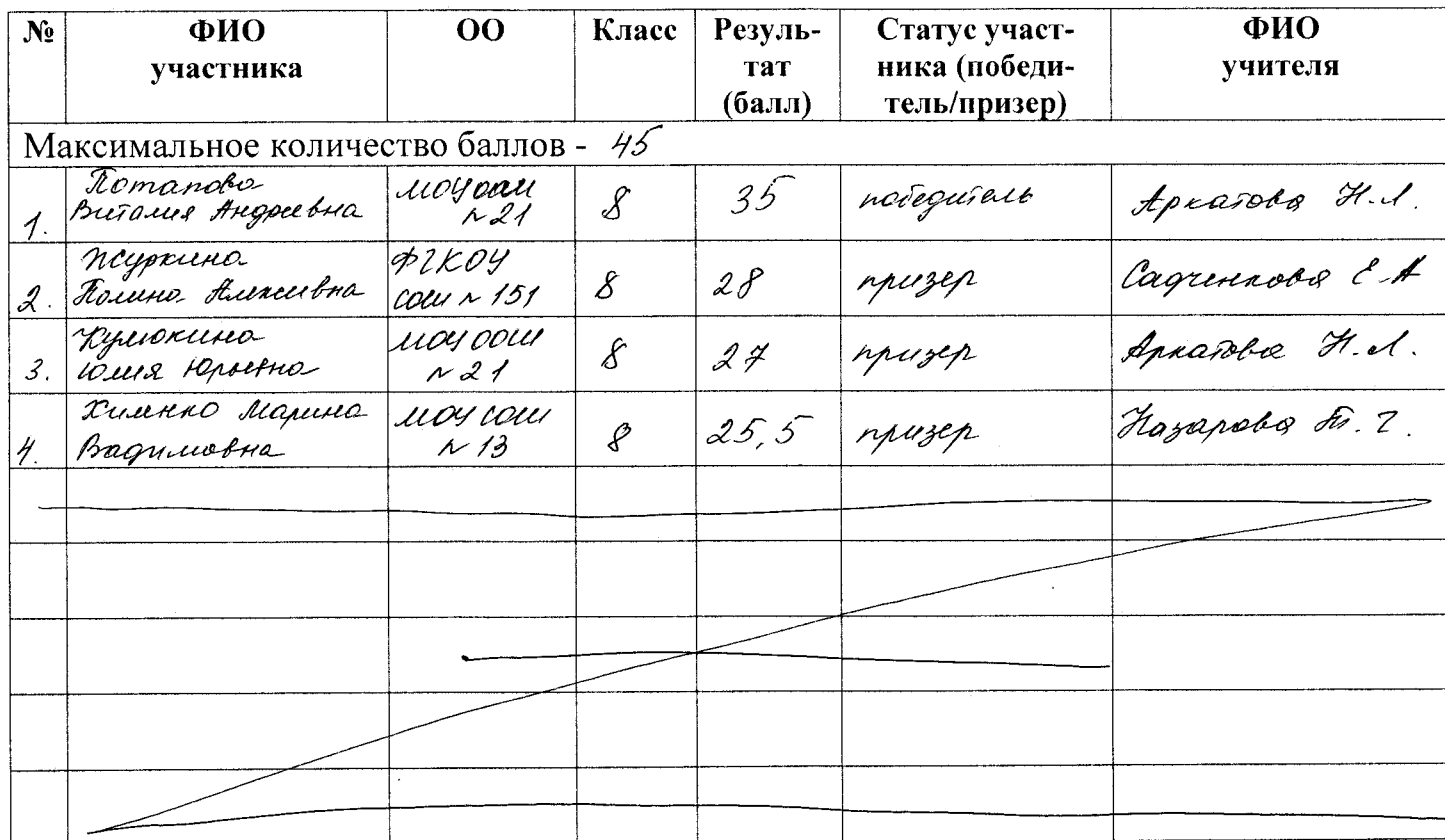 № ФИО участника ОО Класс Резуль-тат (балл) Статус участ-ника (победи-тель/призер) ФИО учителя
Максимальное количество баллов - 45
1. Потапова Виталия Андреевна МОУ ООШ №21 8 35 победитель Аркатова Н.Л.
2. Журкина Полина Алексеевна ФГКОУ СОШ №151 8 28 призер Садченкова Е.А
3. Кулюкина Юлия Юрьевна МОУ ООШ №21 8 27 призер Аркатова Н.Л.
4. Хименко Марина Вадимовна МОУ СОШ №13 8 25,5 призер Назарова Т.Г.